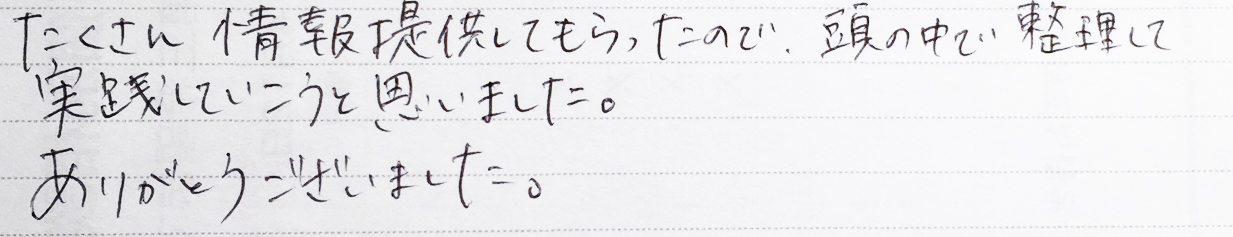 たくさん 情報提供してもらったので、頭の中で 整理して
実践していこうと思いました。
ありがとうございました。